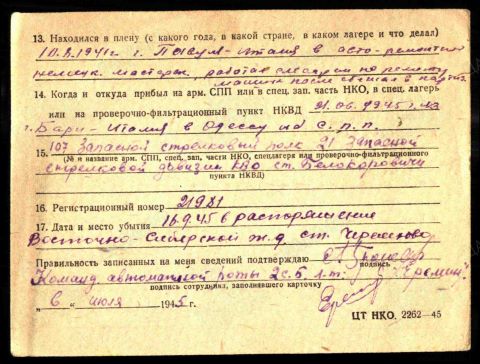 13. Находился в плену (с какого года, в какой стране, в каком лагере и что делал)
10.8.1941г г. Италия в авто-ремонтной
немецк. мастерск. работал слесарем по ремонту
машин после сбежал в партиз.
14. Когда и откуда прибыл на арм. СПП или в спец. зап. часть НКО, в спец. лагерь
или на проверочно-фильтрационный пункт НКВД 21.06.1945г из
г. Бари-Италия в Одессу на с.п.п.
15. 107 Запасной стрелковый полк 21 Запасной
(№ и название арм. СПП, спец. зап. части НКО, спецлагеря или проверочно-фильтрационного
стрелковой дивизии ст. Белокоровичи
пункта НКВД)
16. Регистрационный номер 21981
17. Дата и место убытия 16.9.45 в распоряжение
Восточно-Сибирской ж.д. ст. Черемхово
Правильность записанных на меня сведений подтверждаю
подпись
Команд. автоматной роты 2с.б л-т.
подпись сотрудника, заполнявшего карточку
в „ “ июля 1945 г.
ЦТ НКО. 2262—45